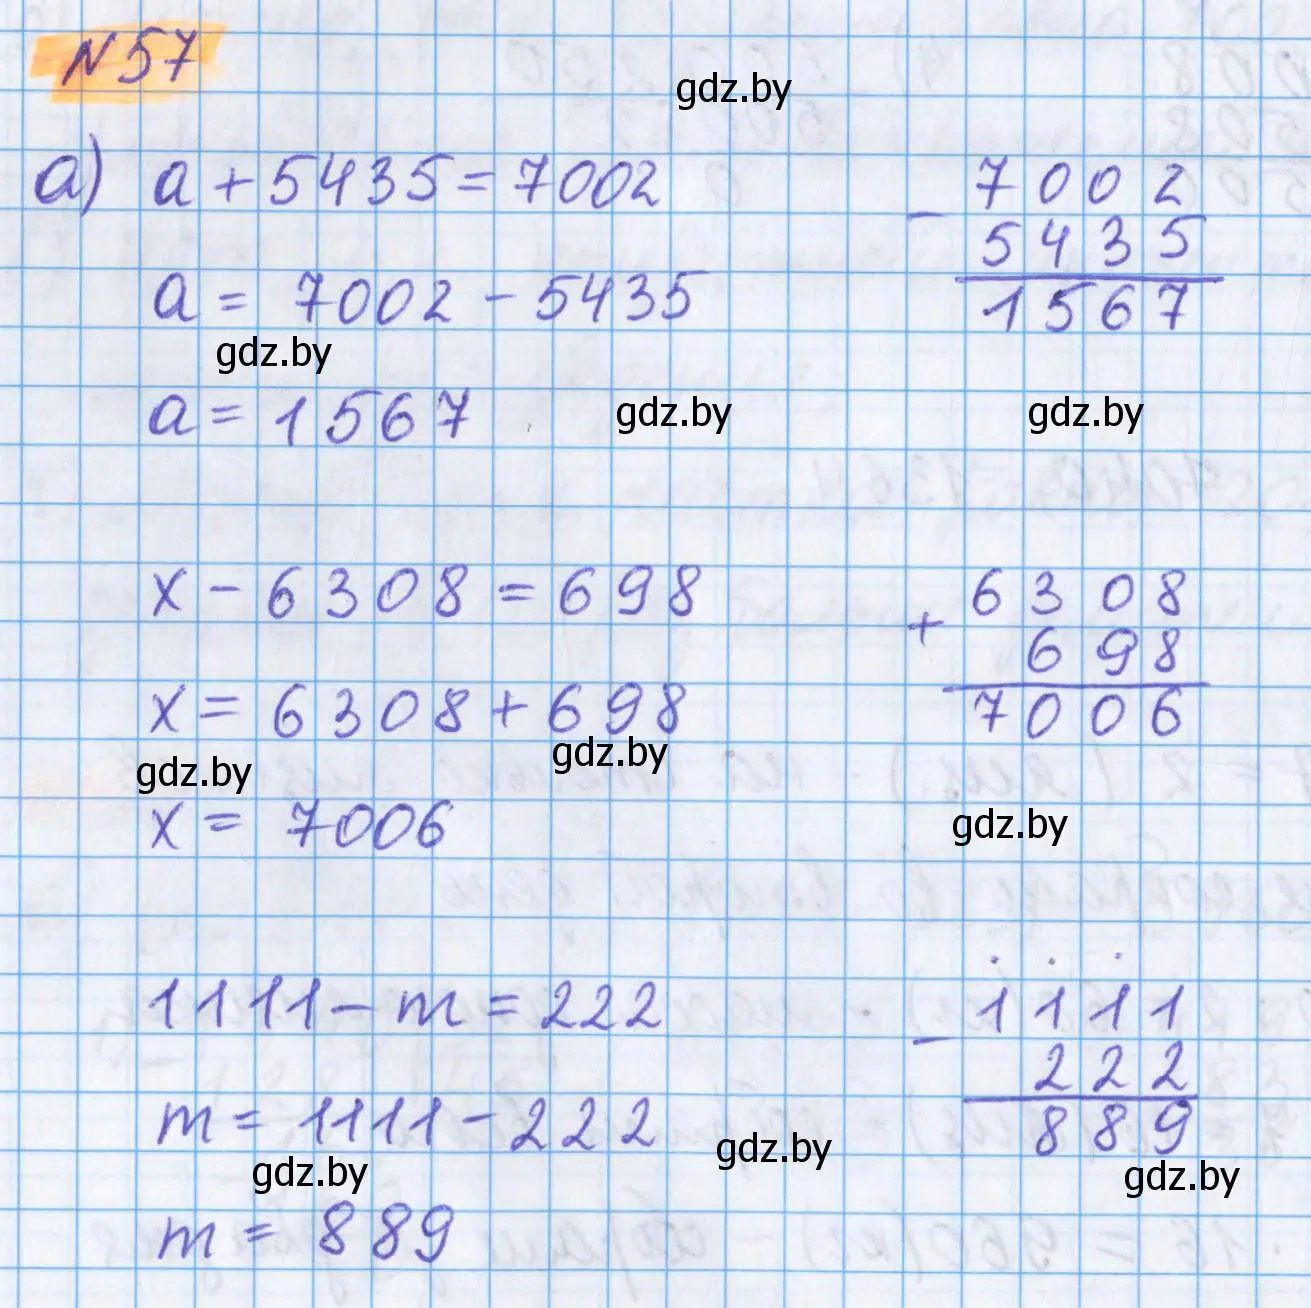 N 57
gdz.by
а) a + 5435 = 7002
a = 7002 - 5435
gdz.by
a = 1567
- 7002
5435
1567
gdz.by
gdz.by
x - 6308 = 698
x = 6308 + 698
gdz.by
gdz.by
x = 7006
+ 6308
698
7006
gdz.by
1111 - m = 222
m = 1111 - 222
gdz.by
m = 889
- 1111
222
889
gdz.by
gdz.by